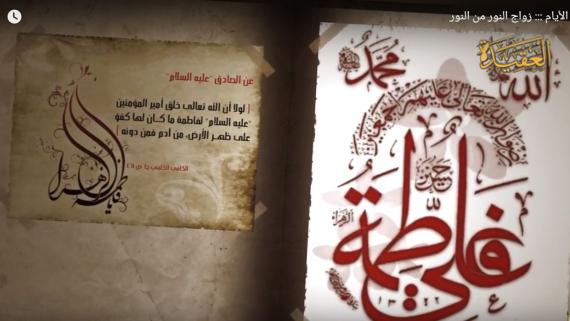 الأيام ::: زواج النور من النور
عن الصادق "عليه السلام"
[ لولا أن الله تعالى خلق أمير المؤمنين
"عليه السلام" لفاطمة ما كان لها كفؤ
على ظهر الأرض، من آدم فمن دونه ]
فاطمة الزهرا
العقيدة
الله
محمد
علي
فاطمة
الزهراء
حسن